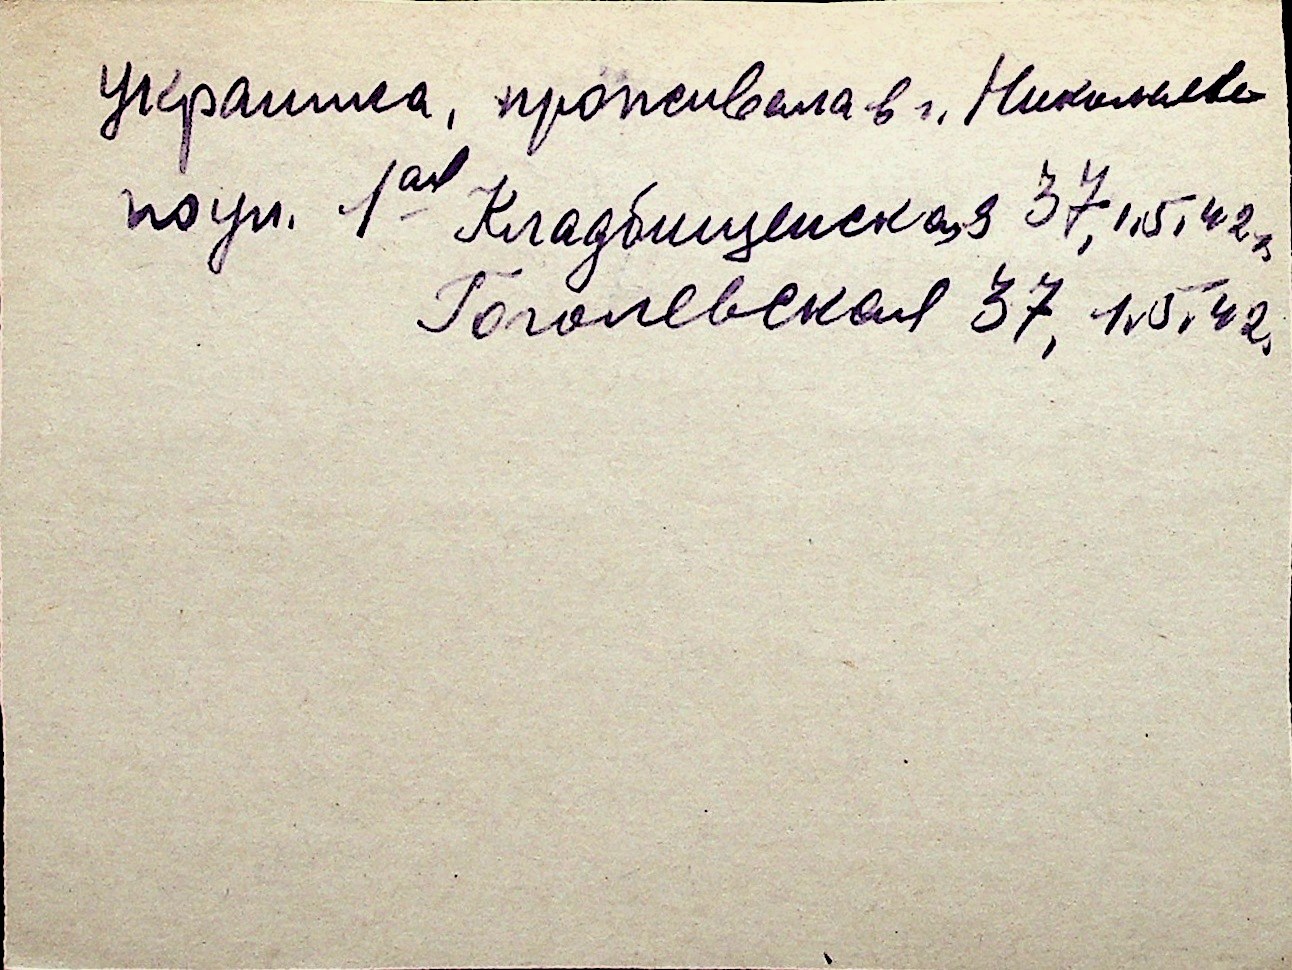 Украинка, проживала в г. Николаеве
по ул. 1ая Кладбищенская 37, 1.5.42.
Гоголевская 37, 1.5.42.